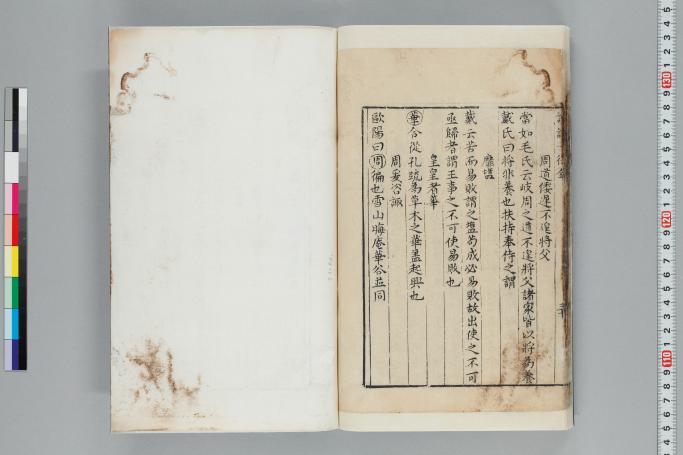 周道倭遲不遑將父
當如毛氏云岐周之道不遑將父諸家皆以將為養
戴氏曰將非養也扶持奉侍之謂
靡盬
戴云苦而易敗謂之盬苟成必易敗故出使之不可
亟歸者謂王事之不可使易敗也
皇皇者華
華合從孔疏為草木之華蓋起興也
周爰咨諏
歐陽曰周徧也雪山晦庵華谷並同
130
120
110